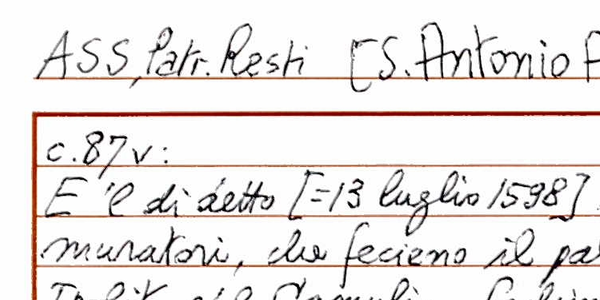 ASS, Patr. Resti [S. Antonio
c. 87v:
E 'l di detto [=13 luglio 1598]
muratori, che fecieno il